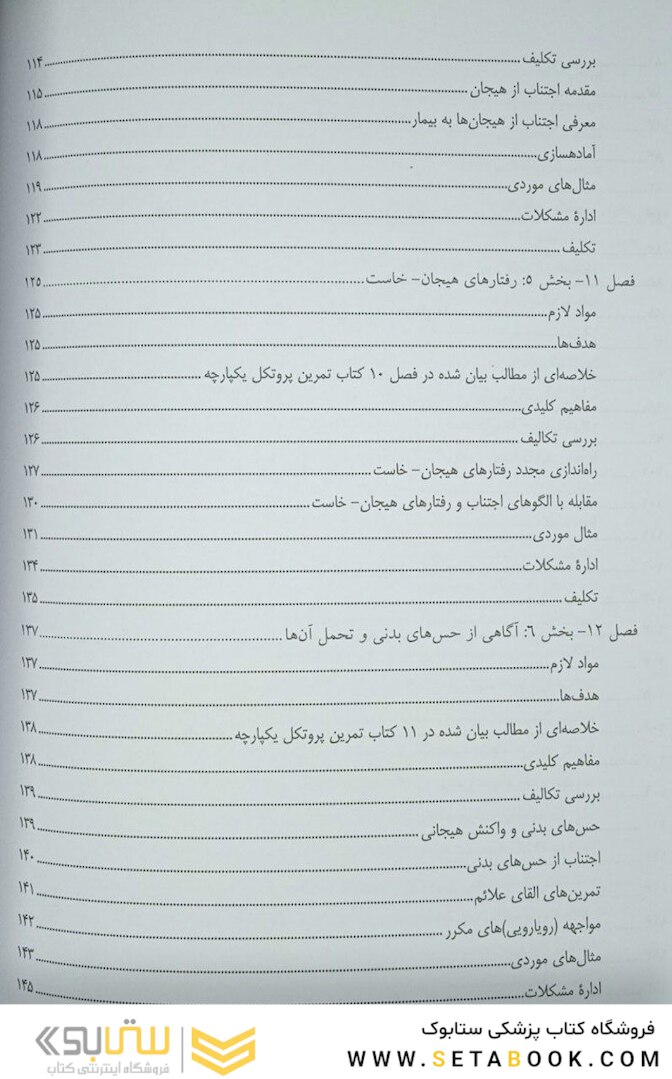 بررسی تکلیف ........ ۱۱۴
مقدمه اجتناب از هیجان ........ ۱۱۵
معرفی اجتناب از هیجان‌ها به بیمار ........ ۱۱۸
آمادهسازی ........ ۱۱۸
مثال‌های موردی ........ ۱۱۹
ادارهٔ مشکلات ........ ۱۲۲
تکلیف ........ ۱۲۳
فصل ۱۱- بخش ۵: رفتارهای هیجان- خاست ........ ۱۲۵
مواد لازم ........ ۱۲۵
هدف‌ها ........ ۱۲۵
خلاصه‌ای از مطالب بیان شده در فصل ۱۰ کتاب تمرین پروتکل یکپارچه ........ ۱۲۵
مفاهیم کلیدی ........ ۱۲۶
بررسی تکالیف ........ ۱۲۶
راه‌اندازی مجدد رفتارهای هیجان- خاست ........ ۱۲۷
مقابله با الگوهای اجتناب و رفتارهای هیجان- خاست ........ ۱۳۰
مثال موردی ........ ۱۳۱
ادارهٔ مشکلات ........ ۱۳۴
تکلیف ........ ۱۳۵
فصل ۱۲- بخش ۶: آگاهی از حس‌های بدنی و تحمل آن‌ها ........ ۱۳۷
مواد لازم ........ ۱۳۷
هدف‌ها ........ ۱۳۷
خلاصه‌ای از مطالب بیان شده در ۱۱ کتاب تمرین پروتکل یکپارچه ........ ۱۳۸
مفاهیم کلیدی ........ ۱۳۸
بررسی تکالیف ........ ۱۳۹
حس‌های بدنی و واکنش هیجانی ........ ۱۳۹
اجتناب از حس‌های بدنی ........ ۱۴۰
تمرین‌های القای علائم ........ ۱۴۱
مواجهه (رویارویی)های مکرر ........ ۱۴۲
مثال‌های موردی ........ ۱۴۳
ادارهٔ مشکلات ........ ۱۴۵
فروشگاه کتاب پزشکی ستابوک
WWW.SETABOOK.COM
ستابوک
فروشگاه اینترنتی کتاب